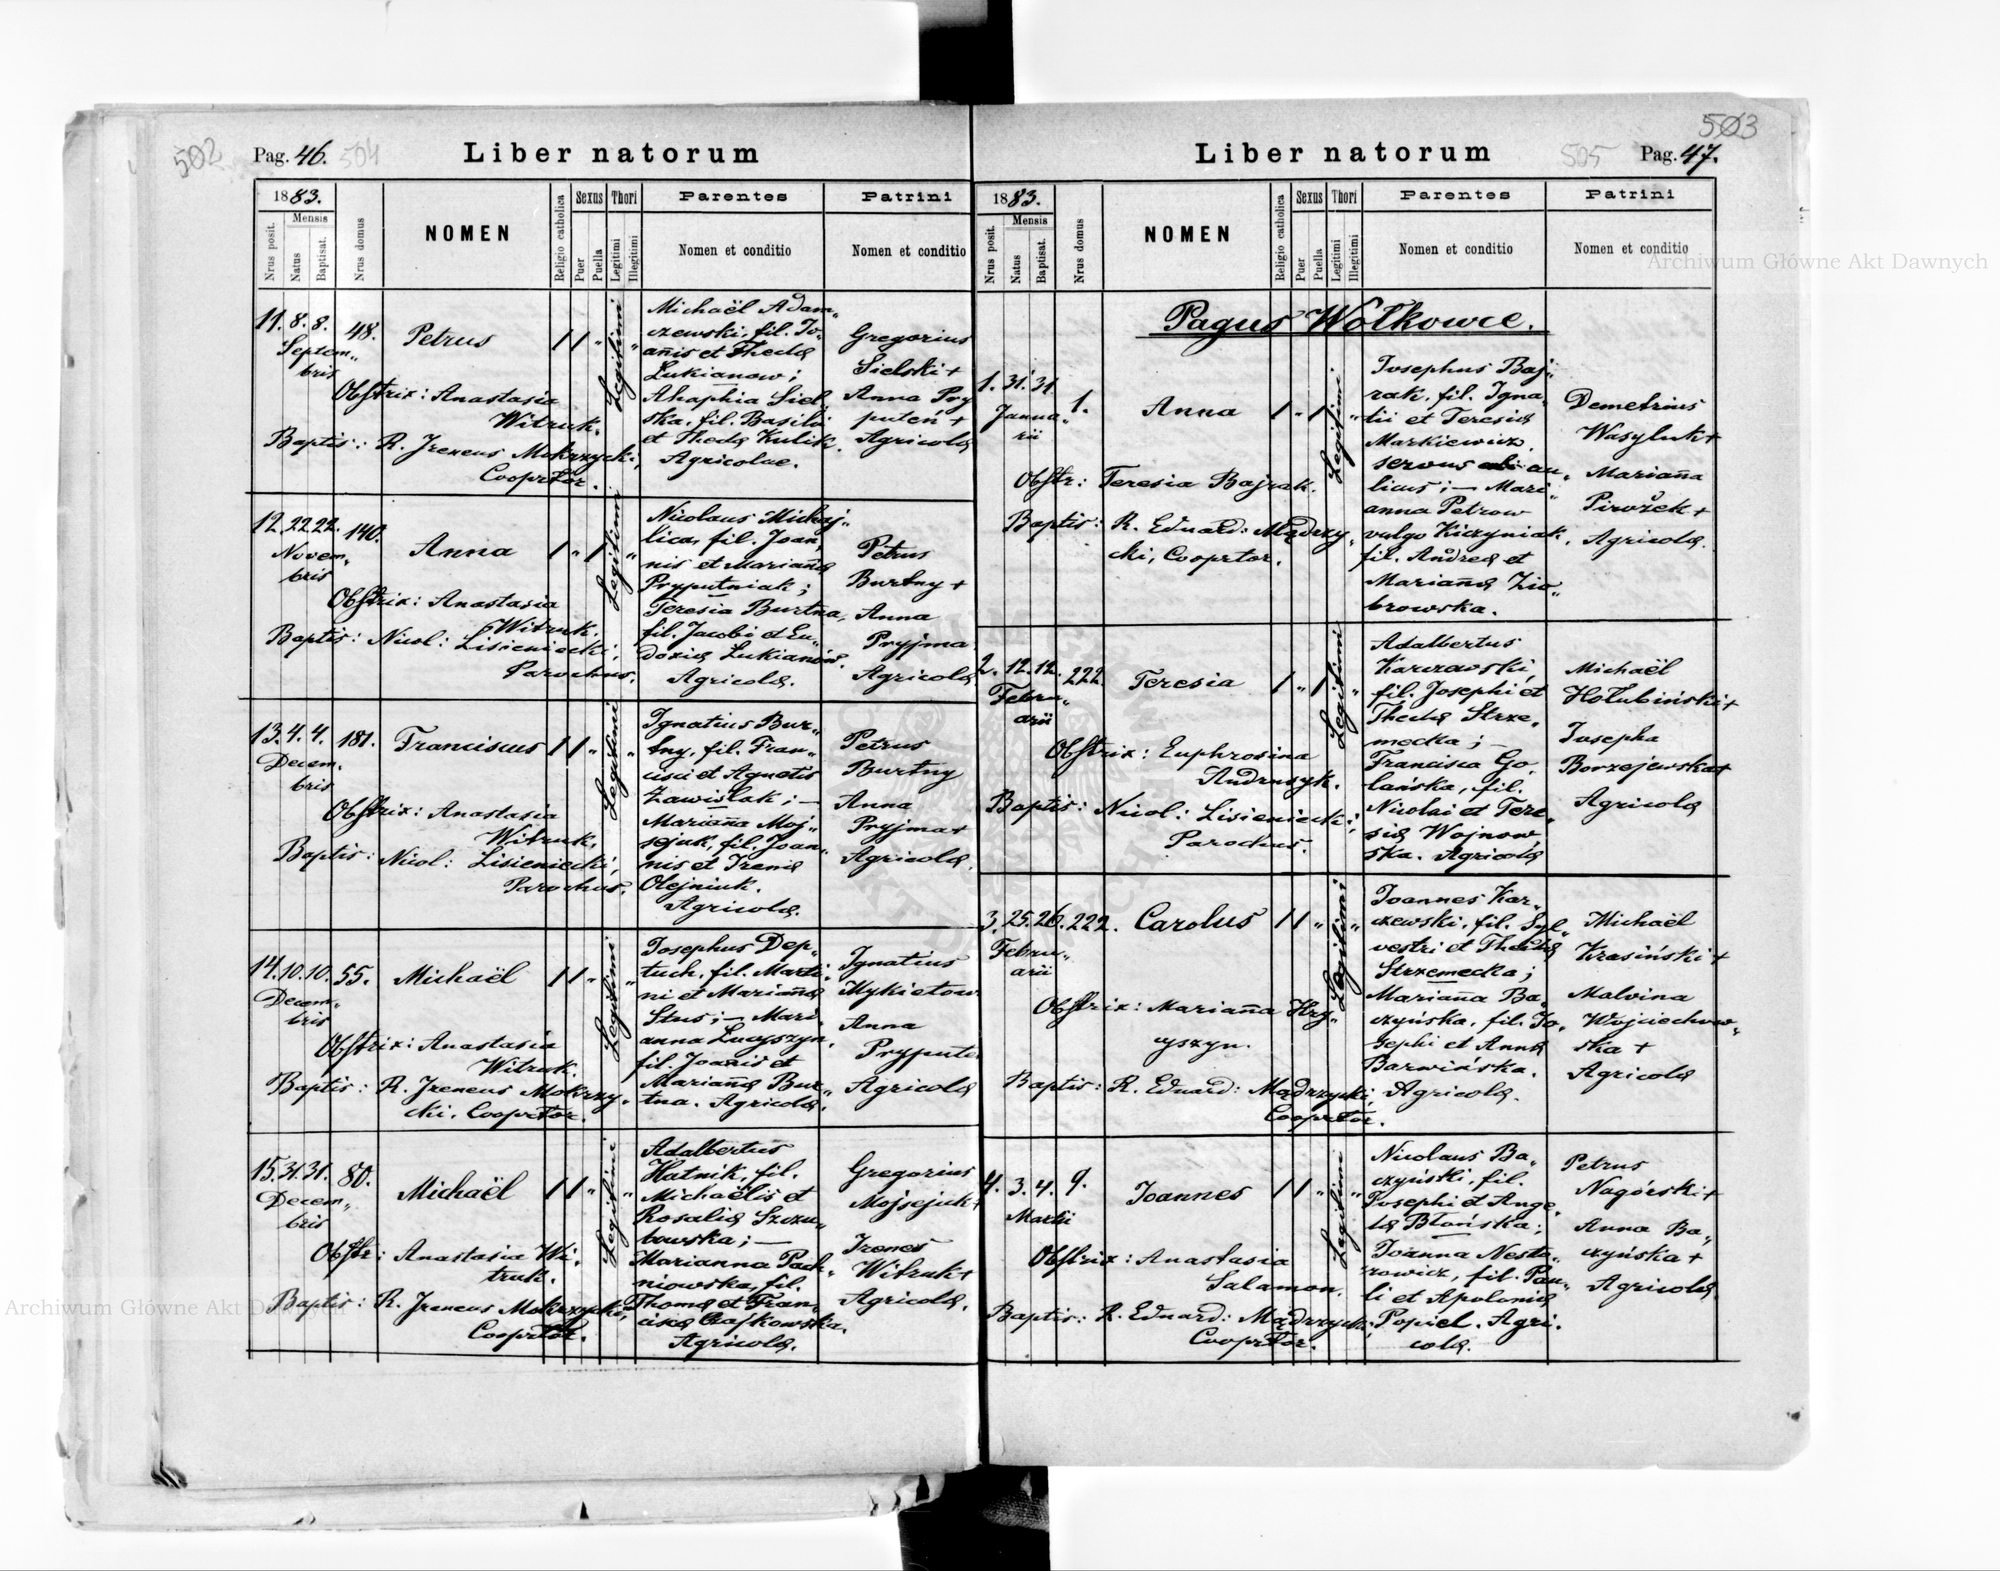 502
Pag. 46. 504
Liber natorum
1883.
Nrus posit.
Mensis
Natus
Baptisat.
Nrus domus
NOMEN
Religio catholica
Sexus
Puer
Puella
Thori
Legitimi
Illegitimi
Parentes
Nomen et conditio
Patrini
Nomen et conditio
11. 8. 8. 48. Petrus
Septem„
bris
Obstrix: Anastasia
Witruk.
Baptis: R. Ireneus Mokrzycki,
Cooprtor.
Legitimi
Michaël Adam„
czewski, fil. Jo„
añis et Theclæ
Lukianow;
Ahaphia Siel„
ska, fil. Basilii
et Theclæ Kulik.
Agricolae.
Gregorius
Sielski +
Anna Pry
puteń +
Agricolæ
12. 22. 22. 140. Anna
Novem„
bris
Obstrix: Anastasia
Witruk.
Baptis: Nicol: Lisieniecki,
Parochus.
Legitimi
Nicolaus Michaj„
lica, fil. Joan„
nis et Mariañæ
Pryputniak;
Teresia Burtna,
fil. Jacobi et Eu„
doxiæ Lukianów.
Agricolæ.
Petrus
Burtny +
Anna
Pryjma
Agricolæ
13. 4. 4. 181. Franciscus
Decem„
bris
Obstrix: Anastasia
Witruk.
Baptis: Nicol: Lisieniecki,
Parochus.
Legitimi
Ignatius Bur„
tny, fil. Fran„
cisci et Agnetis
Zawislak; —
Mariaña Moj„
sejuk, fil. Joan„
nis et Irenæ
Olejniuk.
Agricolæ.
Petrus
Burtny
Anna
Pryjma +
Agricolæ.
14. 10. 10. 55. Michaël
Decem„
bris
Obstrix: Anastasia
Witruk.
Baptis: R. Ireneus Mokrzy„
cki, Cooprtor.
Legitimi
Josephus Dep„
tuch, fil. Marti„
ni et Mariañæ
Stus; — Mari„
anna Lucyszyn,
fil. Joañis et
Mariañæ Bur„
tna. Agricolæ.
Ignatius
Mykietow
Anna
Prypute
Agricolæ
15. 31. 31. 80. Michaël
Decem„
bris
Obstr: Anastasia Wi„
truk.
Baptis: R. Ireneus Mokrzycki,
Cooprtor.
Legitimi
Adalbertus
Hatnik, fil.
Michaëlis et
Rosaliæ Szczu„
bowska; —
Marianna Pach„
niowska, fil.
Thomæ et Fran„
ciscæ Czajkowska.
Agricolæ.
Gregorius
Mojsejuk +
Irenes
Witruk +
Agricolæ.
503
Liber natorum
505 Pag. 47.
1883.
Nrus posit.
Mensis
Natus
Baptisat.
Nrus domus
NOMEN
Religio catholica
Sexus
Puer
Puella
Thori
Legitimi
Illegitimi
Parentes
Nomen et conditio
Patrini
Nomen et conditio
Pagus Wołkowce.
1. 31. 31. 1. Anna
Janua„
rii
Obstr: Teresia Bajrak.
Baptis: R. Eduard: Mądrzy„
cki, Cooprtor.
Legitimi
Josephus Baj„
rak, fil. Igna„
tii et Teresiæ
Markiewicz,
servus au„
licus; — Mari„
anna Petrow
vulgo Kiczyniak,
fil. Andreæ et
Mariañæ Zio„
browska.
Demetrius
Wasyluk +
Mariaña
Pirożek +
Agricolæ.
2. 12. 12. 222. Teresia
Febru„
arii
Obstrix: Euphrosina
Andruszyk.
Baptis: Nicol: Lisieniecki,
Parochus.
Legitimi
Adalbertus
Karczewski,
fil. Josephi et
Theclæ Strze„
mecka; —
Francisca Go„
lańska, fil.
Nicolai et Tere„
siæ Wojnow„
ska. Agricolæ
Michaël
Hołubiński +
Josepha
Borzejewska +
Agricolæ
3. 25. 26. 222. Carolus
Febru„
arii
Obstrix: Mariaña Hry„
yszyn.
Baptis: R. Eduard: Mądrzycki,
Cooprtor.
Legitimi
Joannes Kar„
czewski, fil. Syl„
vestri et Theclæ
Strzemecka;
Mariaña Ba„
czyńska, fil. Jo„
sephi et Annæ
Barwińska.
Agricolæ.
Michaël
Krasiński +
Malvina
Wojciechow„
ska +
Agricolæ
4. 3. 4. 9. Joannes
Martii
Obstrix: Anastasia
Salamon.
Baptis: R. Eduard: Mądrzycki,
Cooprtor.
Legitimi
Nicolaus Ba„
czyński, fil.
Josephi et Ange„
læ Błońska;
Joanna Nesto„
rowicz, fil. Pau„
li et Apoloniæ
Popiel. Agri„
colæ.
Petrus
Nagórski +
Anna Ba„
czyńska +
Agricolæ
Archiwum Główne Akt Dawnych
Archiwum Główne Akt Dawnych